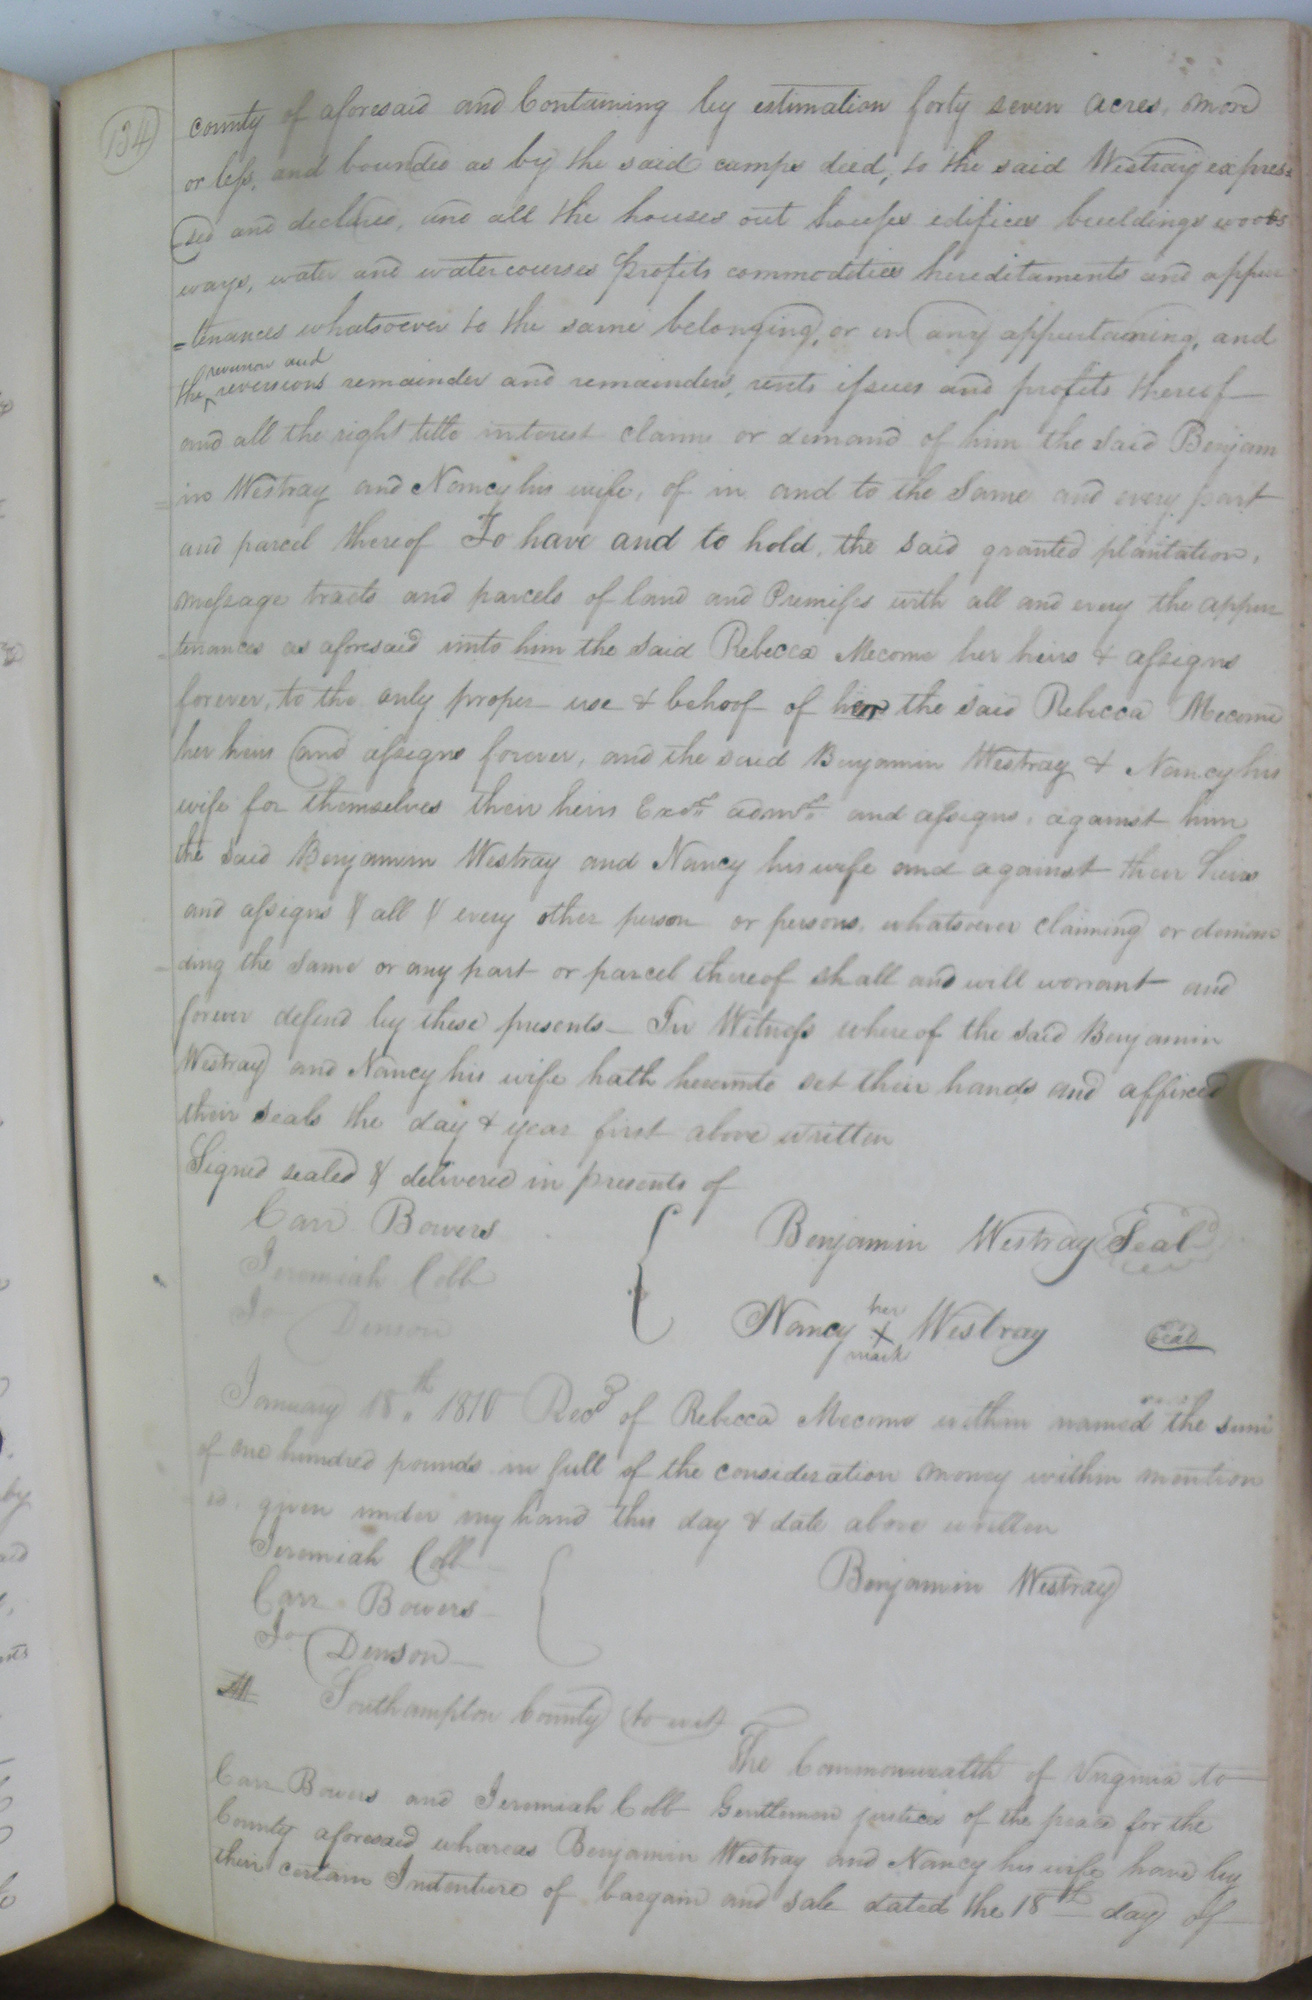 134
county of aforesaid and Containing by estimation forty seven acres, more
or less, and bounded as by the said camps deed, to the said Westray expres=
sed and declared, and all the houses out houses edifices buildings woods
ways, water and watercourses profits commodities hereditaments and appur
=tenances whatsoever to the same belonging, or in any appertaining, and
revenue and
the reversions remainder and remainders, rents issues and profits thereof
and all the right title interest claims or demand of him the said Benjam
=in Westray and Nancy his wife, of in and to the Same and every part
and parcel thereof To have and to hold, the said granted plantation,
message tracts and parcels of land and Premises with all and every the appur
=tenances as aforesaid unto him the said Rebecca Mecome her heirs & assigns
forever, to the only proper use & behoof of her the said Rebecca Mecome
her heirs and assigns forever, and the said Benjamin Westray & Nancy his
wife for themselves their heirs Exrs. admrs. and assigns, against him
the said Benjamin Westray and Nancy his wife and against their heirs
and assigns & all & every other person or persons, whatsoever claiming or deman
=ding the same or any part or parcel thereof shall and will warrant and
forever defend by these presents In Witness where of the said Benjamin
Westray and Nancy his wife hath hereunto set their hands and affixed
their seals the day & year first above written
Signed sealed & delivered in presents of
Carr Bowers Benjamin Westray Seal
Jeremiah Cobb
Jo Denson Nancy her + mark Westray Seal
January 18th. 1810 Recd of Rebecca Mecome within named the sum
of one hundred pounds in full of the consideration money within mention
=ed. given under my hand this day & date above written
Jeremiah Cobb
Benjamin Westray
Carr Bowers
Jo Denson
Southampton County to wit
The Commonwealth of Virginia to
Carr Bowers and Jeremiah Cobb Gentlemen justices of the peace for the
County aforesaid whareas Benjamin Westray and Nancy his wife have by
their certain Indenture of bargain and sale dated the 18th day of